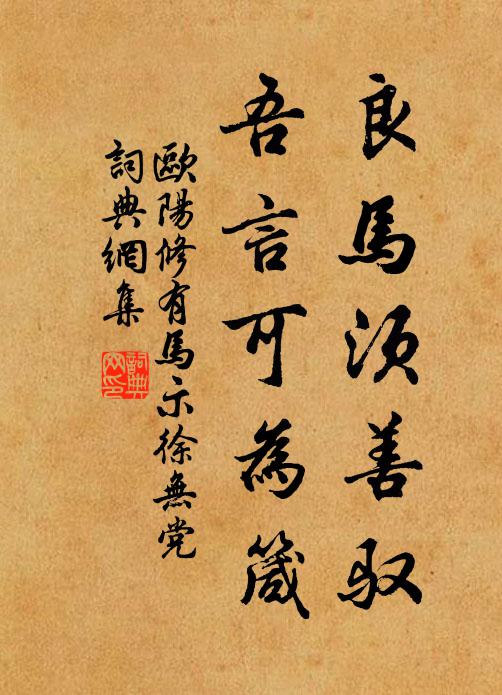 良馬須善馭
吾言可為箴
歐陽修有馬示徐無党
詞典網集
詞典網印